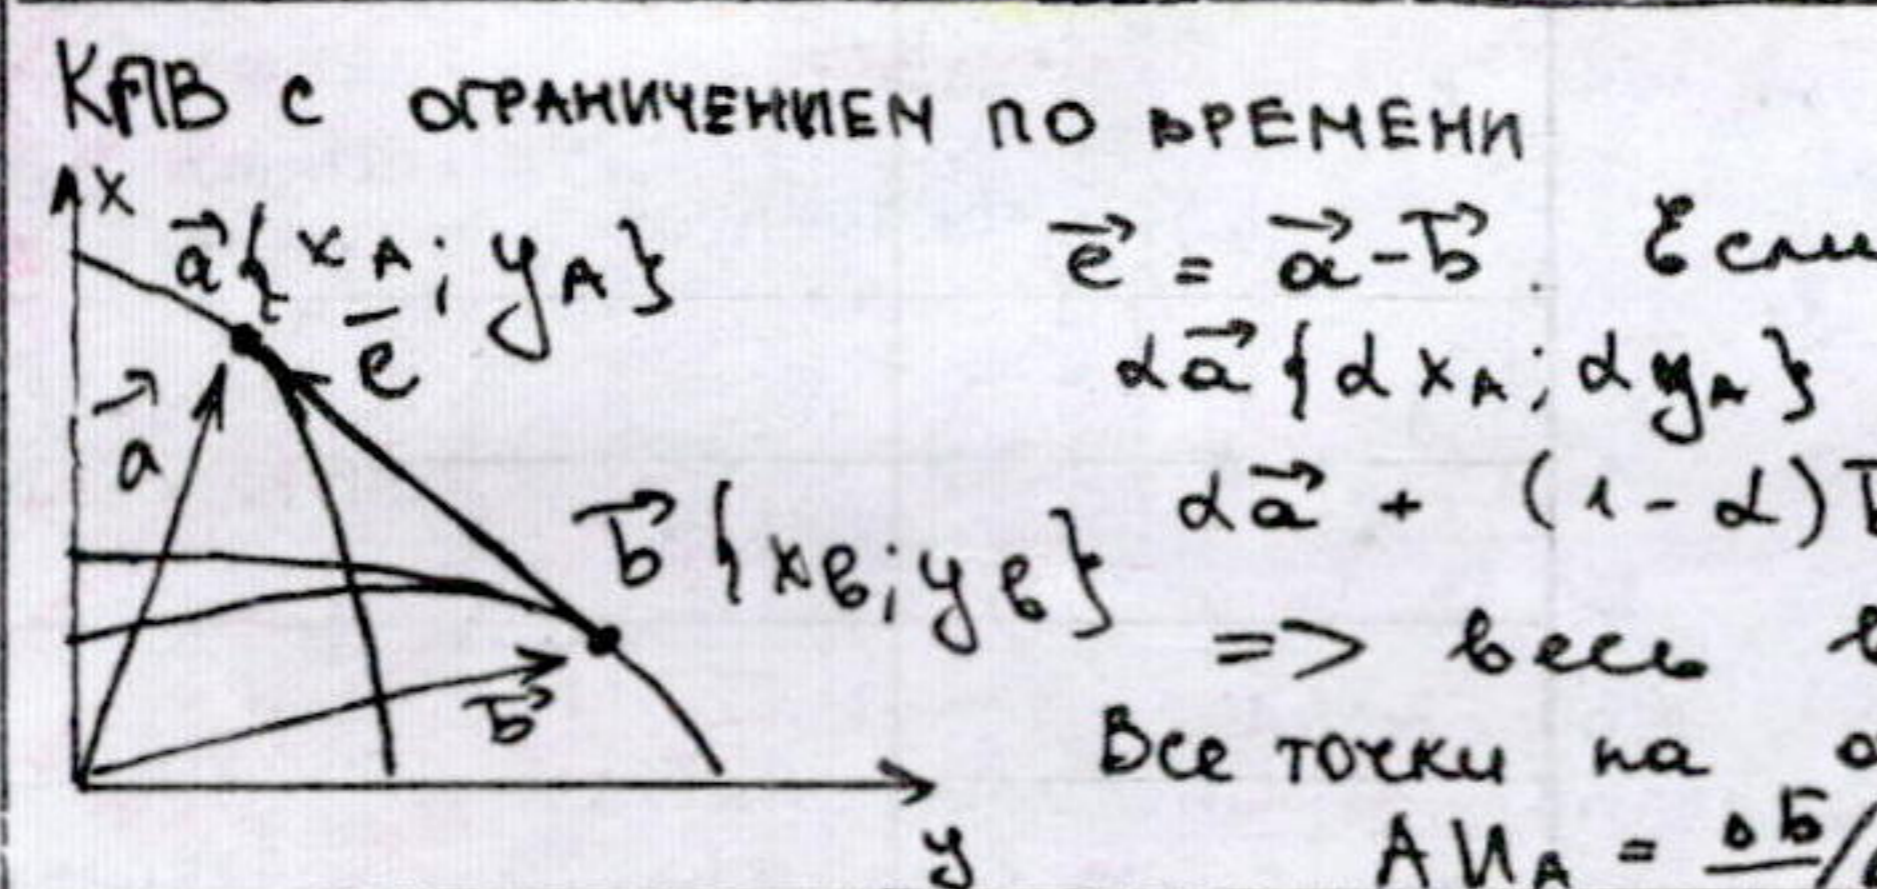 КПВ с ограничением по времени
x
a⃗{x_A; y_A}
e̅
a⃗
b⃗{x_B; y_B}
b⃗
y
e⃗ = a⃗ - b⃗. Если
αa⃗{αx_A; αy_A}
αa⃗ + (1-α)b
=> весь
Все точки на
АИ_A =